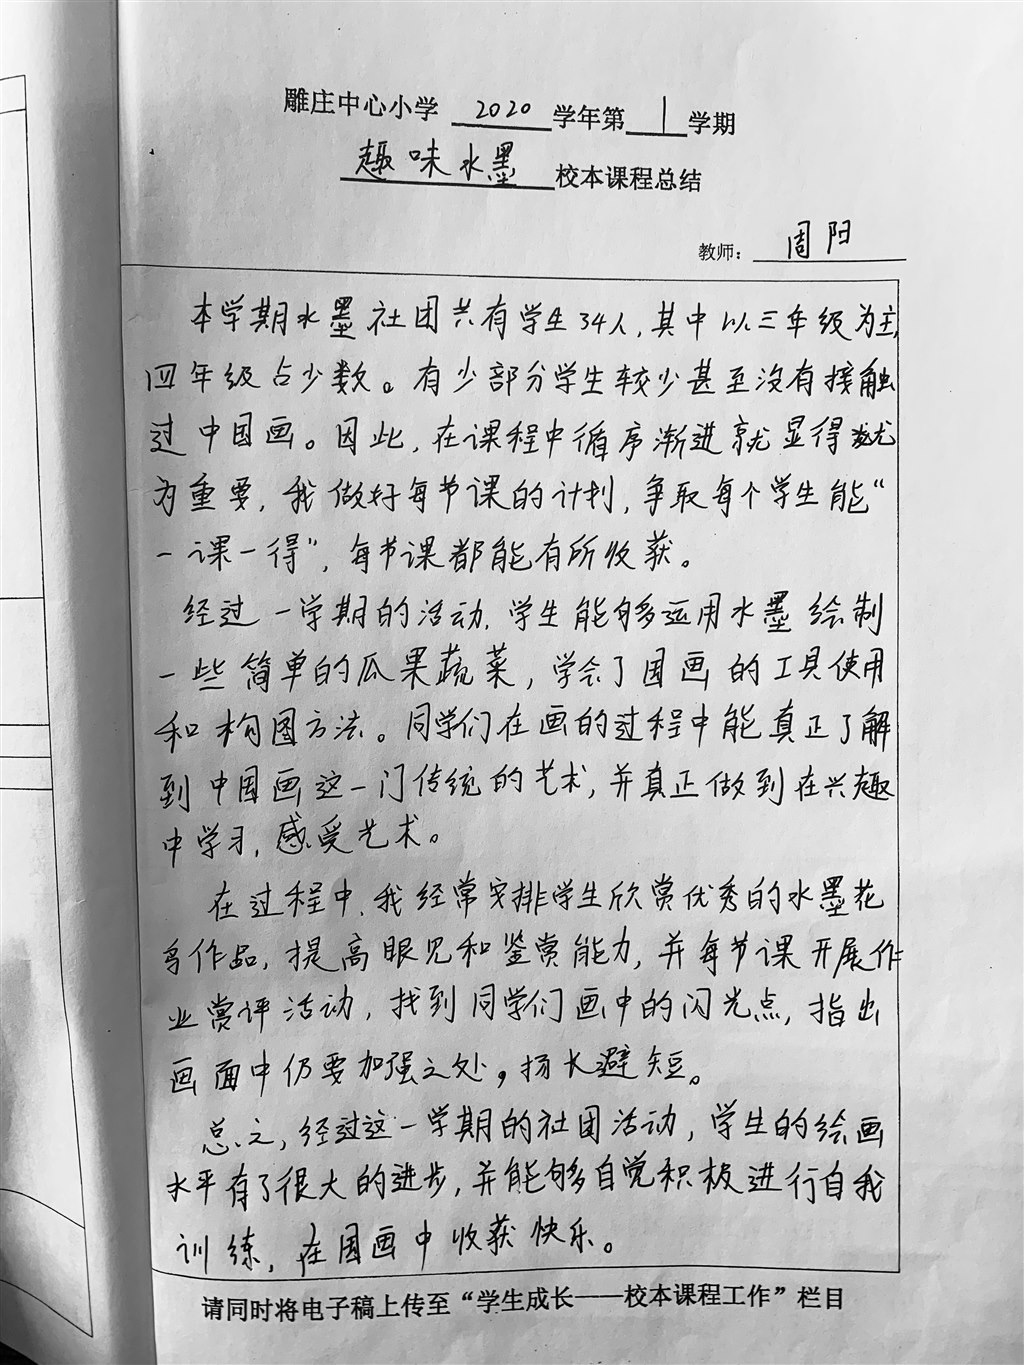 雕庄中心小学 2020 学年第 1 学期
趣味水墨 校本课程总结
教师： 周阳
本学期水墨社团共有学生34人，其中以三年级为主，
四年级占少数。有少部分学生较少甚至没有接触
过中国画。因此，在课程中循序渐进就显得尤
为重要，我做好每节课的计划，争取每个学生能“
一课一得”，每节课都能有所收获。
经过一学期的活动，学生能够运用水墨绘制
一些简单的瓜果蔬菜，学会了国画的工具使用
和构图方法。同学们在画的过程中能真正了解
到中国画这一门传统的艺术，并真正做到在兴趣
中学习，感受艺术。
在过程中，我经常安排学生欣赏优秀的水墨花
鸟作品，提高眼见和鉴赏能力，并每节课开展作
业赏评活动，找到同学们画中的闪光点，指出
画面中仍要加强之处，扬长避短。
总之，经过这一学期的社团活动，学生的绘画
水平有了很大的进步，并能够自觉积极进行自我
训练，在国画中收获快乐。
请同时将电子稿上传至“学生成长——校本课程工作”栏目